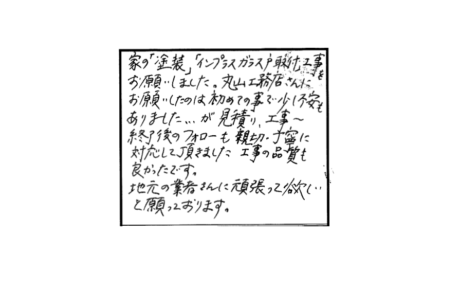 家の「塗装」「インプラスガラス戸取付」工事を
お願いしました。丸山工務店さんに
お願いしたのは初めての事で少し不安も
ありました...が見積り、工事〜
終了後のフォローも親切・丁寧に
対応して頂きました 工事の品質も
良かったです。
地元の業者さんに頑張って欲しい
と願っております。